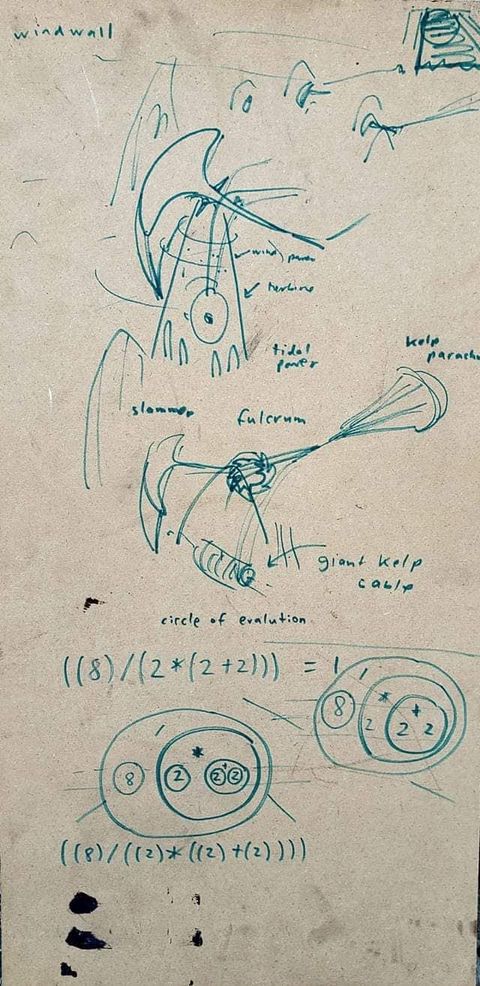 windwall
wind power
turbine
tidal
power
kelp
parachu
slammer
fulcrum
giant kelp
cable
circle of evalution
((8)/(2*(2+2))) = 1
/
8
*
2
+
2 2
/
*
+
8 2 2 2
((8)/((2)*((2)+(2))))